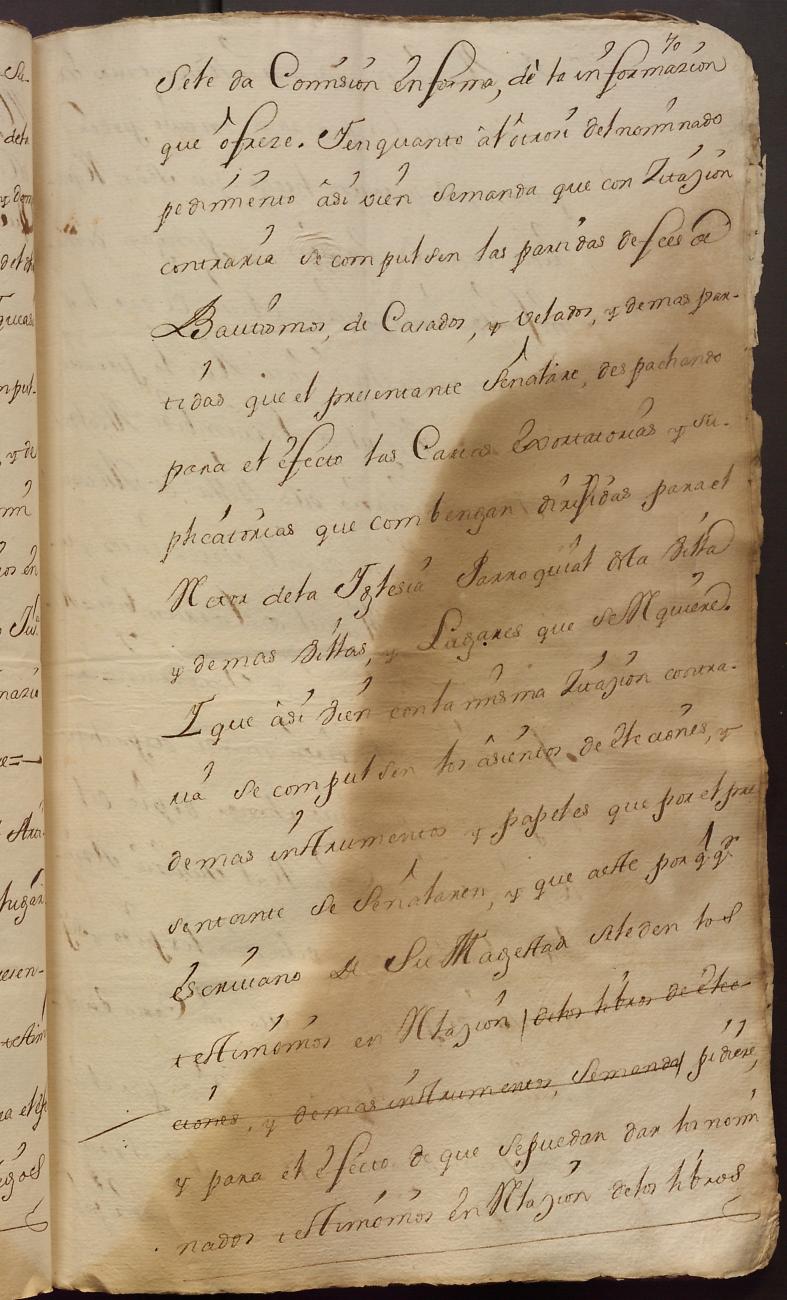 70
Sele da Comision en forma, de la informazion
que ofreze. Yenquanto âl ôtrosi del nominado
pedimiento âsi vien semanda que con Zitazion
contraria se compulsen las partidas defees de
Bautismos, de Casados, y velados, y demas par-
tidas que el presentante señalare, despachando
para el efecto las Cartas Exortatorias y su-
plicatorias que combengan dirijidas para el
Rector dela Yglesia Parroquial dela Villa
y demas Villas, y Lugares que seRequiere.
Y que âsi vien conla misma Zitazion contra-
ria se compulsen los âsientos de elecciones, y
demas instrumentos y papeles que por el pre
sentante se señalaren, y que aeste por qq.r
escrivano de Su Magestad seleden los
testimonios en Relazion | delos libros de elec-
ciones, y demas instrumentos, Semanda | pidiere,
y para el efecto de que sepuedan dar los nomi
nados testimonios en Relazion delos libros